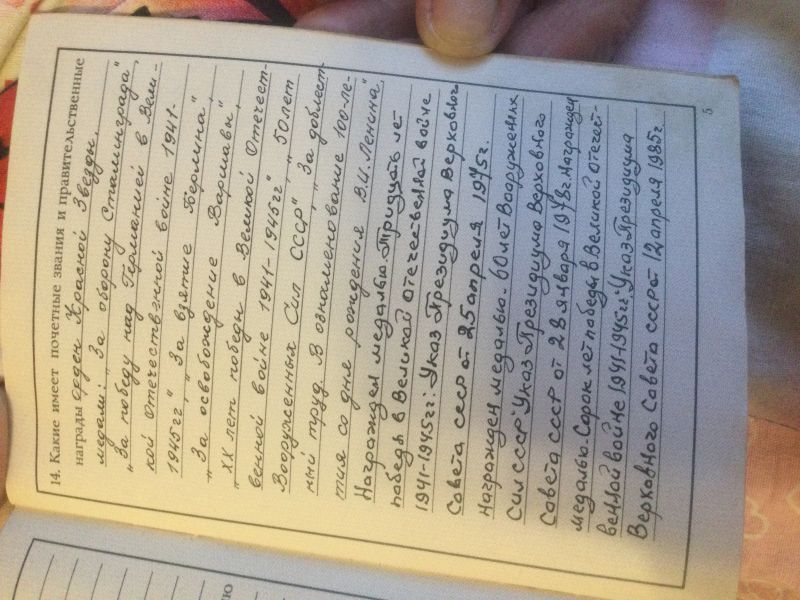 14. Какие имеет почетные звания и правительственные
награды орден Красной Звезды,
медали: "За оборону Сталинграда",
"За победу над Германией в Вели-
кой Отечественной войне 1941-
1945гг", "За взятие Берлина",
"За освобождение Варшавы",
"XX лет победы в Великой Отечест-
венной войне 1941-1945гг", "50 лет
Вооруженных Сил СССР", "За доблест-
ный труд. В ознаменование 100-ле-
тия со дня рождения В.И. Ленина",
Награжден медалью "Тридцать лет
победы в Великой отечественной войне
1941-1945гг". Указ Президиума Верховного
Совета СССР от 25 апреля 1975г.
Награжден медалью "60 лет Вооружениях
Сил СССР" Указ Президиума Верховного
Совета СССР от 28 января 1978г. Награжден
медалью "Сорок лет победы в Великой отечест-
венной войне 1941-1945гг". Указ Президиума
Верховного Совета СССР от 12 апреля 1985г.
5